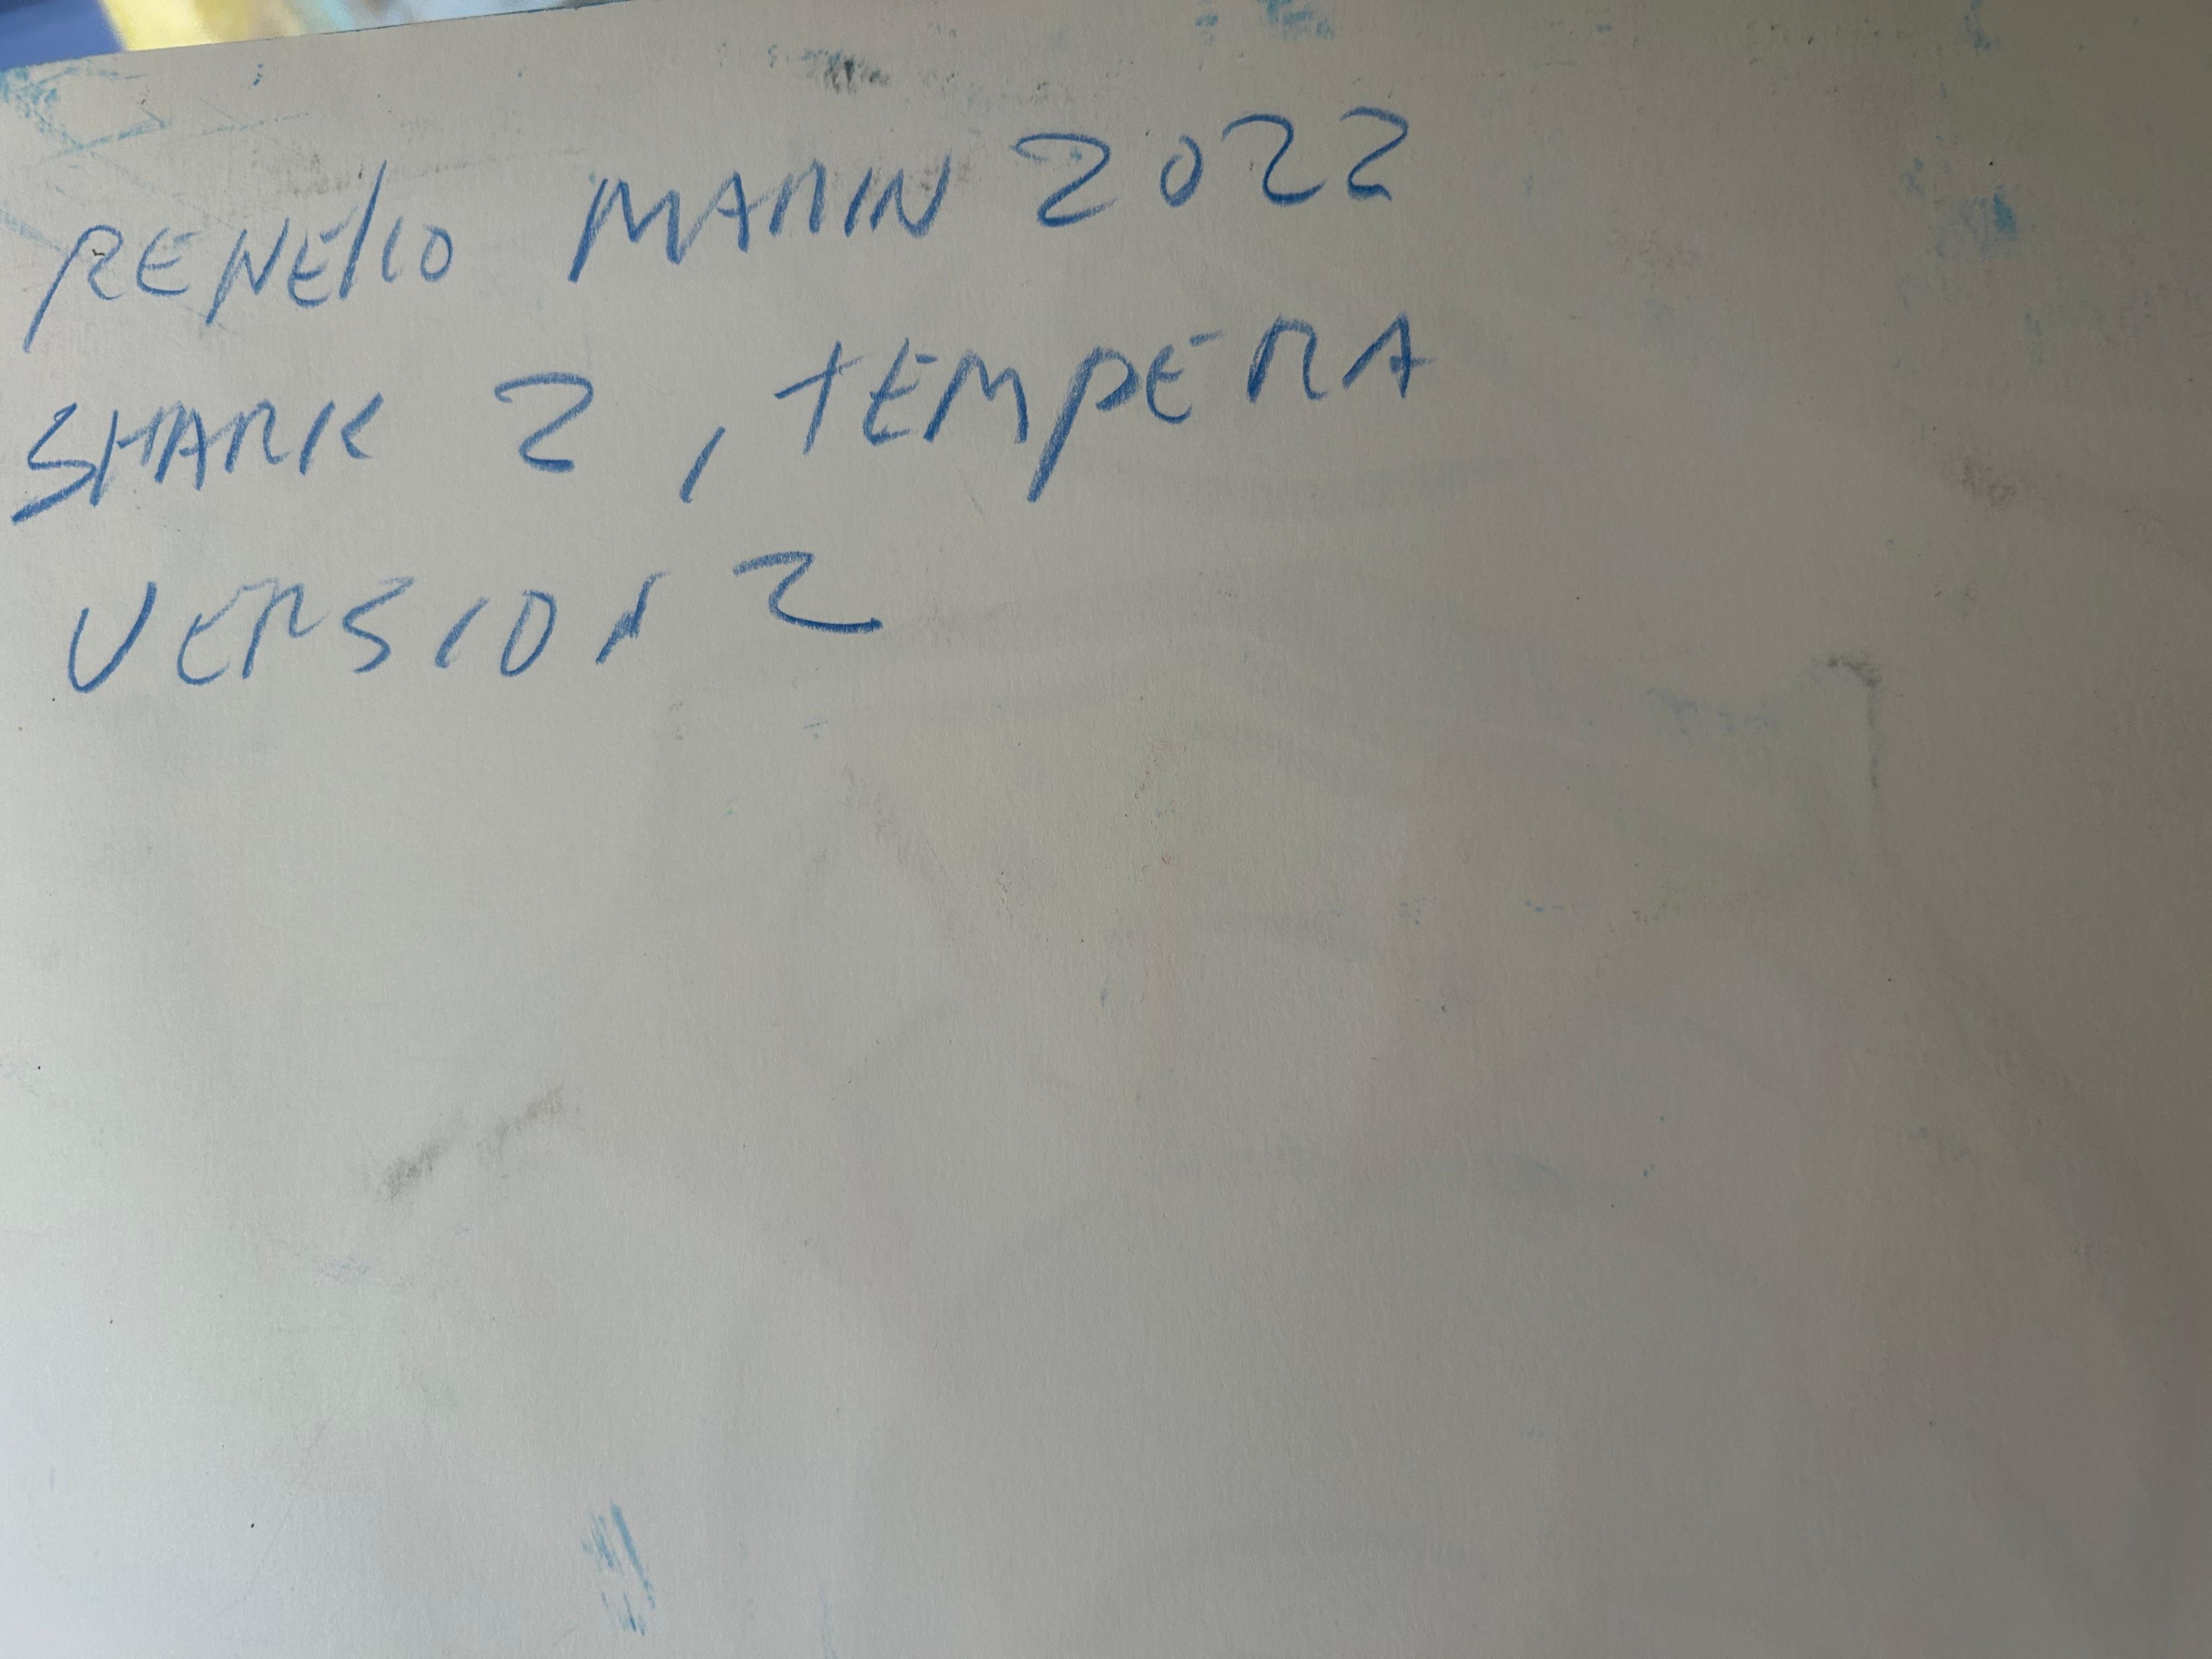 RENElIO MARIN 2022
SHARK 2, TEMPERA
VERSION 2